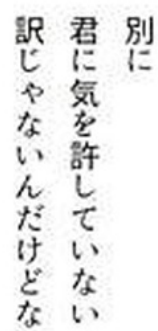 別に
君に気を許していない
訳じゃないんだけどな